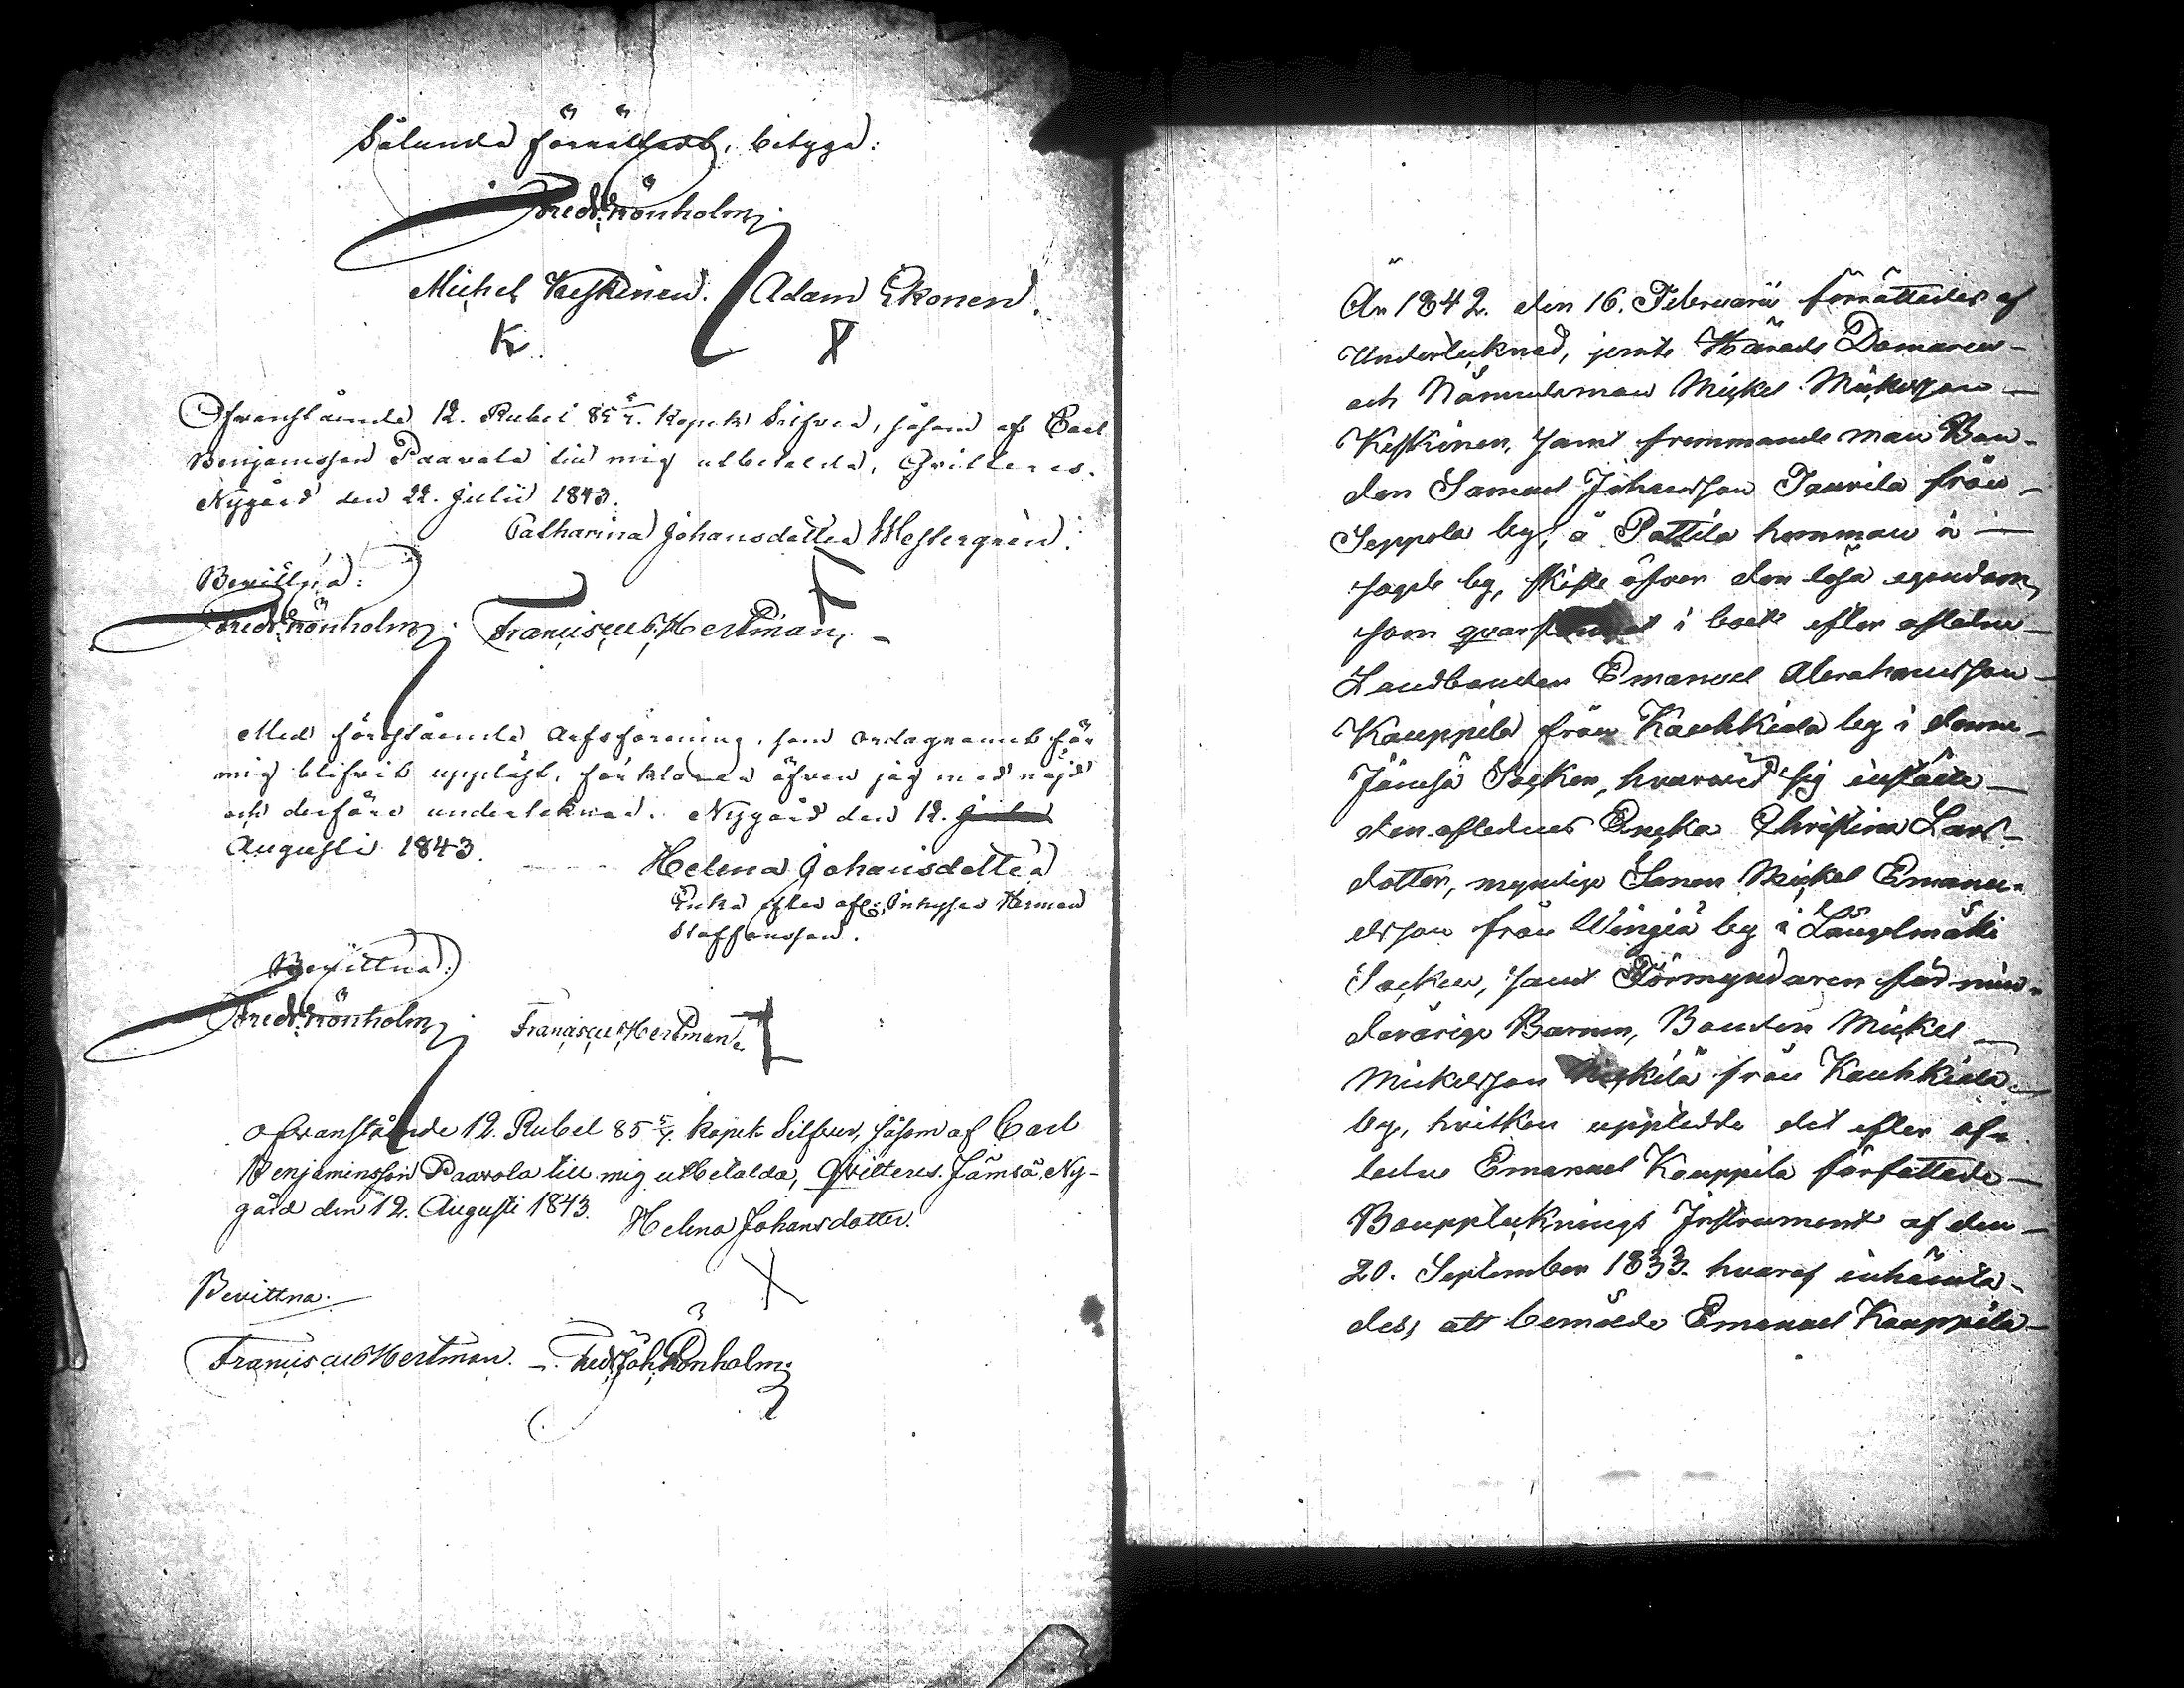 Sålunda förrättadt, betyga:
Fredr. Grönholm
Michel Keskinen. Adam Ekonen.
K X
Ofvanstående 12. Rubel 85 5/7. kopek Silfver, såsom af Carl
Benjamsson Paavola till mig utbetalda, Qvitteres.
Nygård den 22. Julii 1843.
Catharina Johansdotter Westergrén.
Bevittna:
Fredr. Grönholm Franciscus Hertman.
Med förestående arfsförening, som ordagrannt för
mig blifvit uppläst, förklarar äfven jag mig nöjd
och derföre undertecknar. Nygård den 12.
Augusti 1843.
Helena Johansdotter
Enka efter afl: Inhyses Herman
Staffansson.
Bevittna:
Fredr. Grönholm Franciscus Hertman.
Ofvanstående 12. Rubel 85 5/7. kopek Silfver, såsom af Carl
Benjaminsson Paavola till mig utbetalda, Qvitteres. Jämsä, Ny-
gård den 12. Augusti 1843.
Helena Johansdotter.
X
Bevittna.
Franciscus Hertman. Fredr. Joh. Grönholm
År 1842. den 16. Februarii förrättades af
Undertecknad, jemte Härads Domaren
och Nämndeman Mickel Mickelsson
Keskinen, samt fremmande man Bon-
den Samuel Johansson Taurila från
Seppola by, å Pattila hemman i
sagde by, skifte öfver den lösa egendom,
som i boet efter aflidne
Landbonden Emanuel Abrahamsson
Kauppila från Kauhkiala by i denne
Jämsä Socken, hvarvid sig inställte
den aflidnes Encka Christina Lars-
dotter, myndige Sonen Mickel Emanu-
elsson från Wingiä by i Längelmäki
Socken, samt Förmyndaren för min-
derårige Barnen, Bonden Mickel
Mickelsson från Kauhkiala
by, hvilken uppledde det efter af-
ledne Emanuel Kauppila författade
Bouppteknings Instrument af den
20. September 1833. hvaraf inhämta-
des, att bemälde Emanuel Kauppila